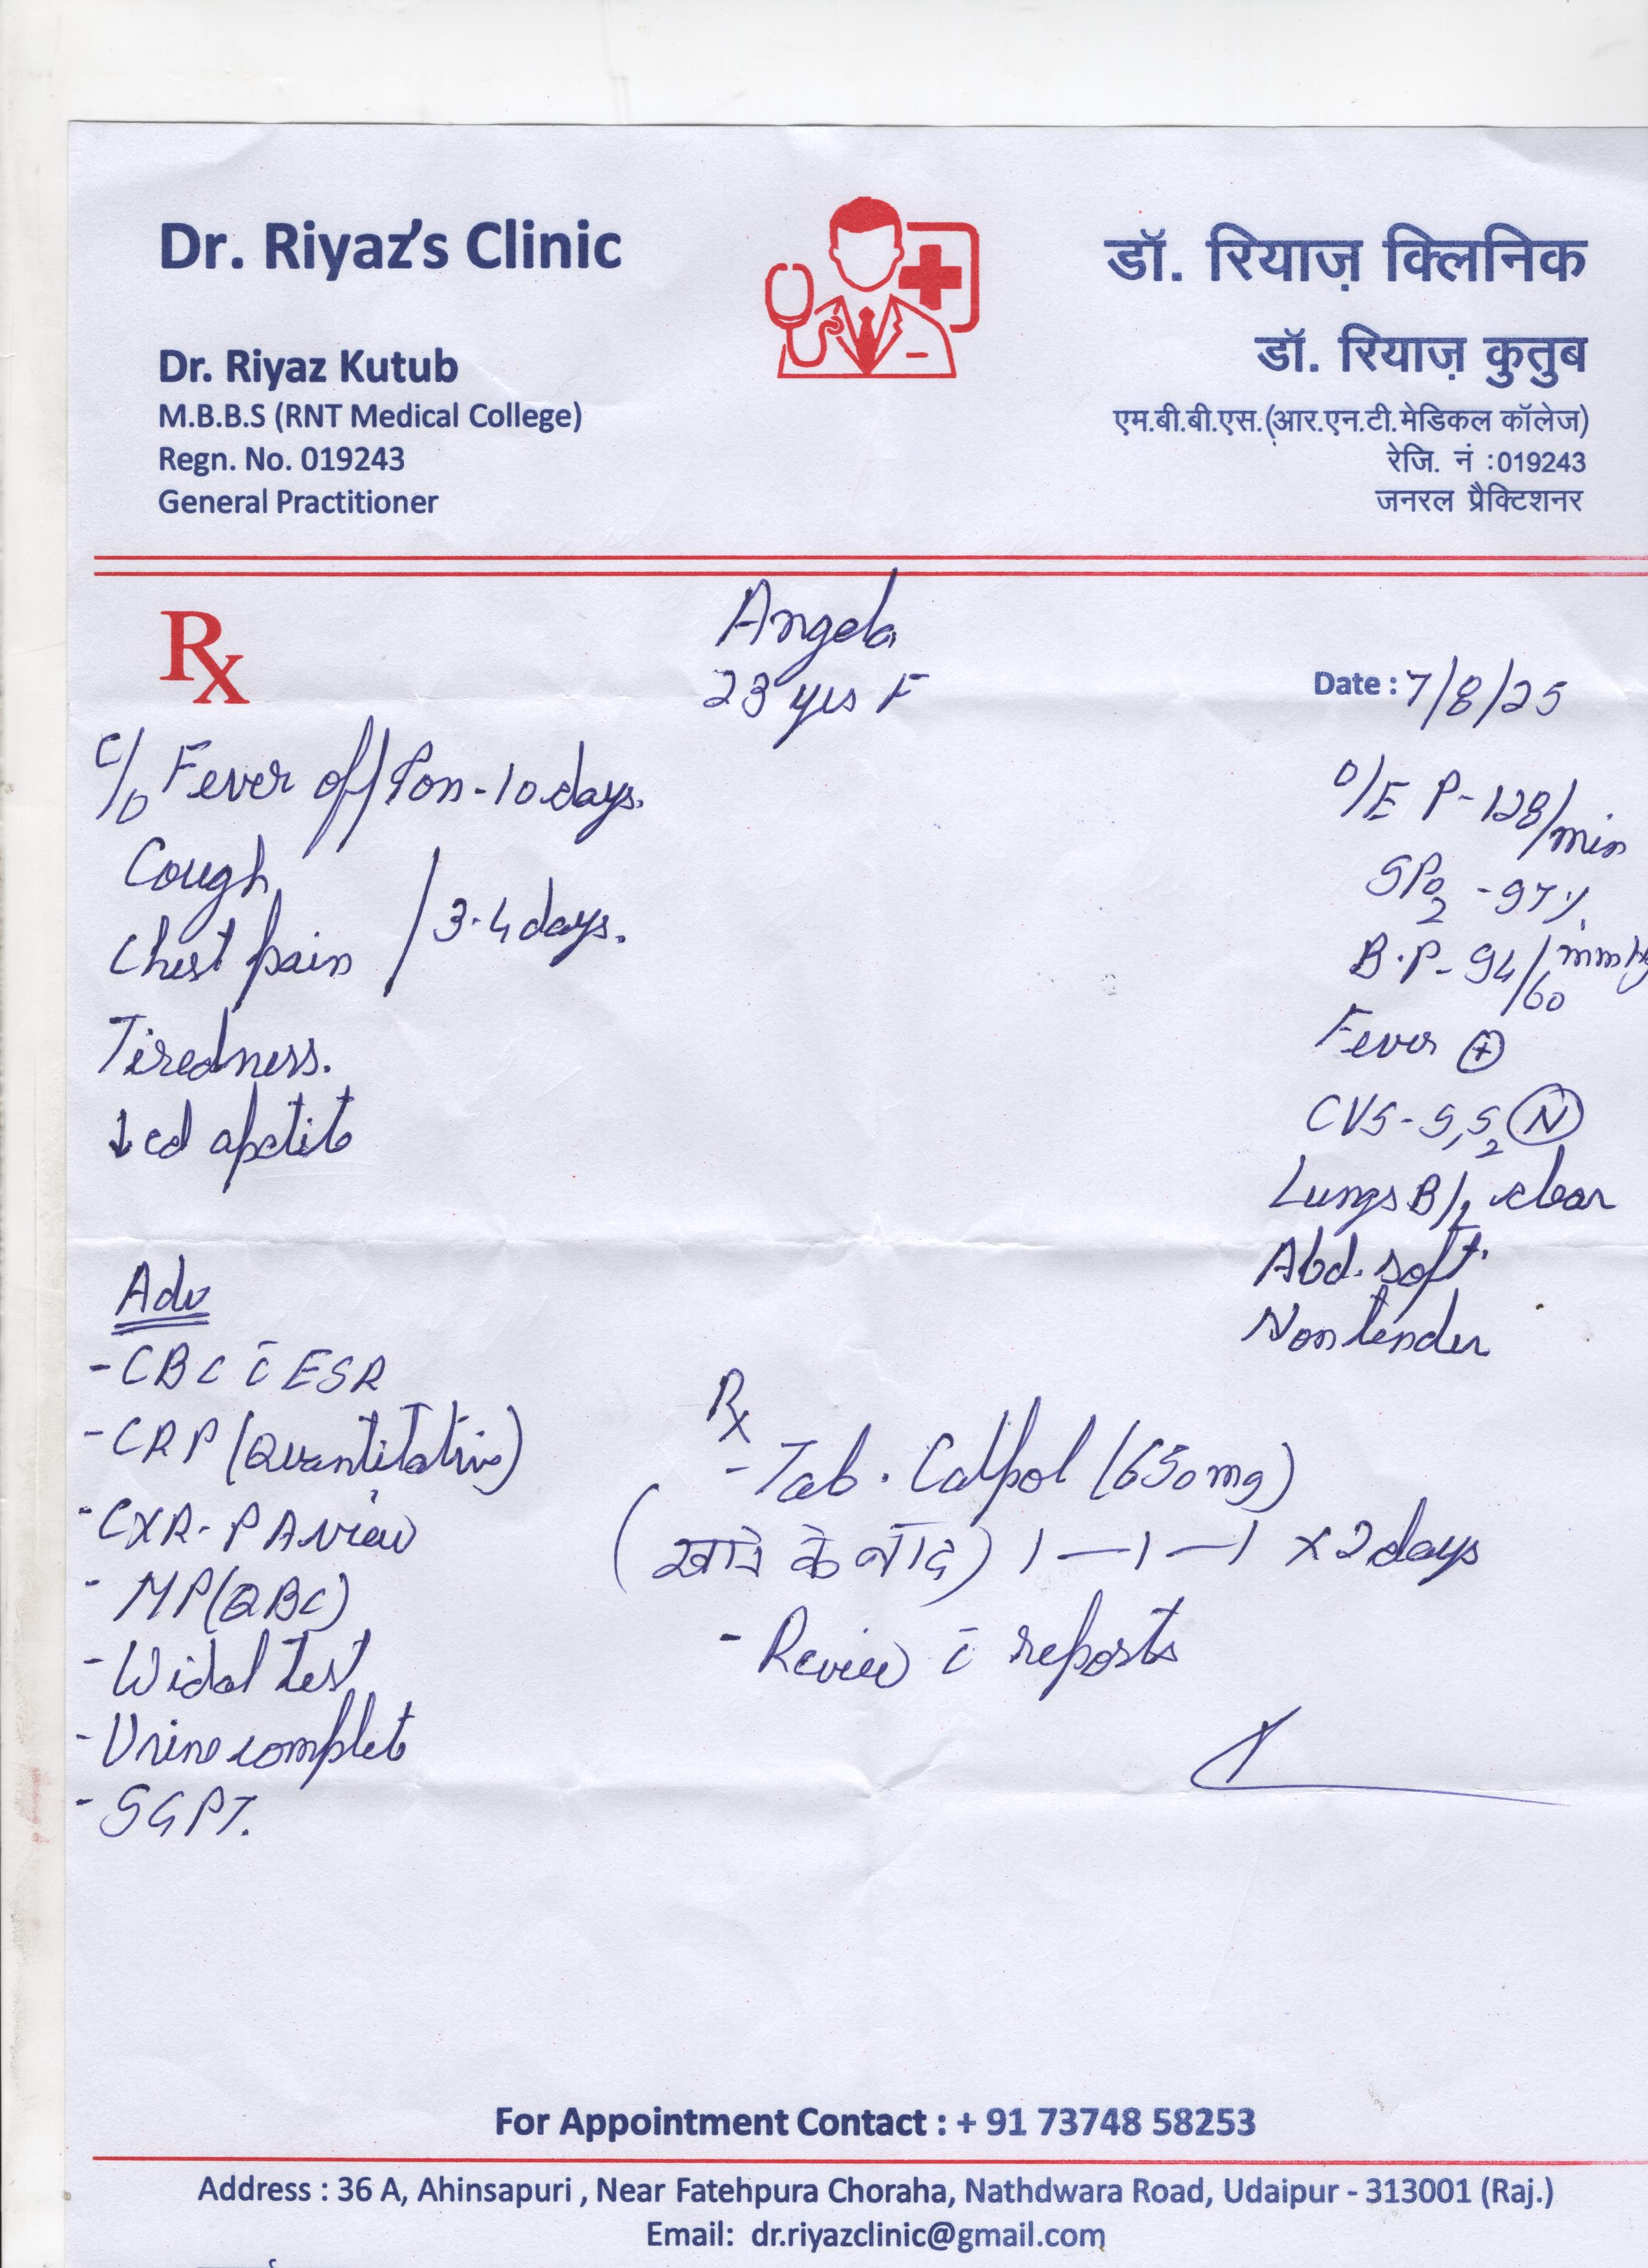 Dr. Riyaz's Clinic
डॉ. रियाज़ क्लिनिक
Dr. Riyaz Kutub
डॉ. रियाज़ कुतुब
M.B.B.S (RNT Medical College)
एम.बी.बी.एस.(आर.एन.टी.मेडिकल कॉलेज)
Regn. No. 019243
रेजि. नं :019243
General Practitioner
जनरल प्रैक्टिशनर
Rx
Angela
23 yrs F
Date : 7/8/25
C/o Fever off/on - 10 days.
Cough
Chest pain / 3-4 days.
Tiredness.
↓ed apetite
O/E P - 128/min
SPO2 - 97%
B.P - 94/60 mmHg
Fever ⊕
CVS - S1S2 (N)
Lungs B/L clear
Abd. soft.
Non tender
Adv
- CBC c̄ ESR
- CRP (Quantitative)
- CXR - PA view
- MP (QBC)
- Widal test
- Urine complete
- SGPT.
Rx
- Tab. Calpol (650mg)
(खाने के बाद) 1—1—1 x 2 days
- Review c̄ reports
For Appointment Contact : + 91 73748 58253
Address : 36 A, Ahinsapuri , Near Fatehpura Choraha, Nathdwara Road, Udaipur - 313001 (Raj.)
Email: dr.riyazclinic@gmail.com